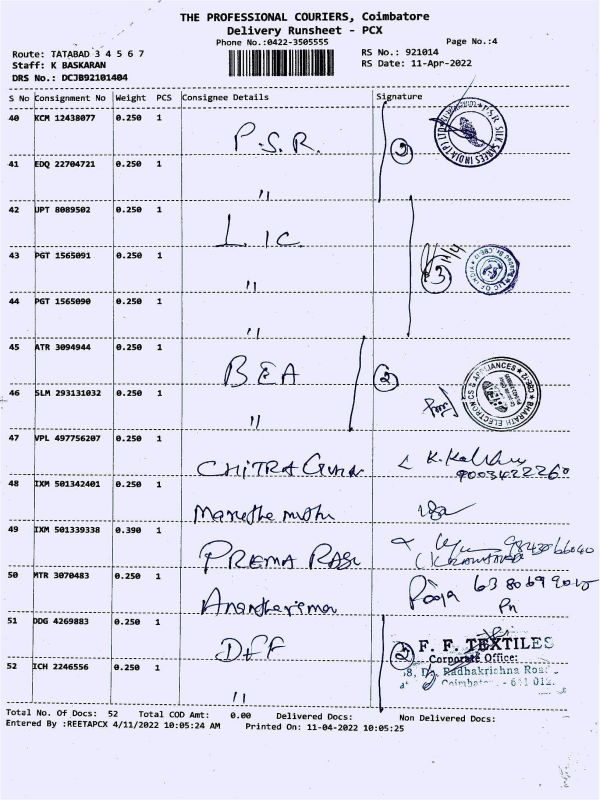 THE PROFESSIONAL COURIERS, Coimbatore
Delivery Runsheet - PCX
Phone No.:0422-3505555
Page No.:4
Route: TATABAD 3 4 5 6 7
RS No.: 921014
Staff: K BASKARAN
RS Date: 11-Apr-2022
DRS No.: DCJB92101404
S No Consignment No Weight PCS Consignee Details Signature
40 KCM 12438077 0.250 1
P.S.R. 2
41 EDQ 22704721 0.250 1
"
42 UPT 8089502 0.250 1
L.I.C.
43 PGT 1565091 0.250 1
" 3
44 PGT 1565090 0.250 1
"
45 ATR 3094944 0.250 1
BEA 2
46 SLM 293131032 0.250 1
"
47 VPL 497756207 0.250 1
CHITRA
48 IXM 501342401 0.250 1
49 IXM 501339338 0.390 1
PREMA
50 MTR 3070483 0.250 1
Pooja
51 DDG 4269883 0.250 1
DFF 2 F. F. TEXTILES
Corporate Office:
52 ICH 2246556 0.250 1
Radhakrishna
"
Total No. Of Docs: 52 Total COD Amt: 0.00 Delivered Docs: Non Delivered Docs:
Entered By :REETAPCX 4/11/2022 10:05:24 AM Printed On: 11-04-2022 10:05:25